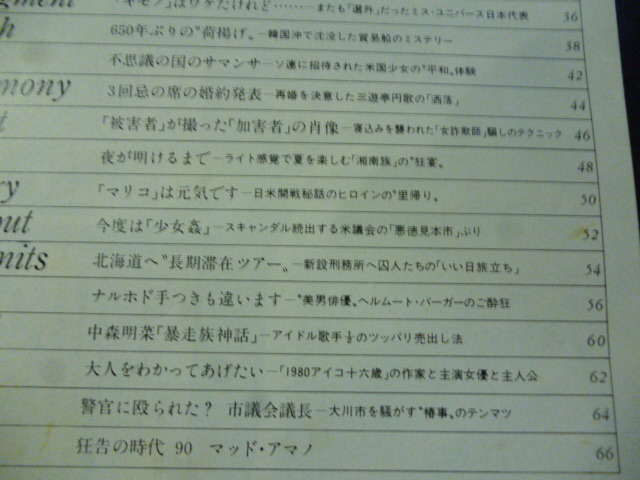 gment 「キモノ」はウケたけれど………またも「選外」だったミス・ユニバース日本代表 36
h 650年ぶりの"荷揚げ〟—韓国沖で沈没した貿易船のミステリー 38
不思議の国のサマンサ—ソ連に招待された米国少女の"平和〟体験 42
mony 3回忌の席の婚約発表—再婚を決意した三遊亭円歌の「洒落」 44
t 「被害者」が撮った「加害者」の肖像—寝込みを襲われた「女詐欺師」騙しのテクニック 46
夜が明けるまで—ライト感覚で夏を楽しむ「湘南族」の"狂宴〟 48
ry 「マリコ」は元気です—日米開戦秘話のヒロインの"里帰り〟 50
out 今度は「少女姦」—スキャンダル続出する米議会の「悪徳見本市」ぶり 52
mits 北海道へ"長期滞在ツアー〟—新設刑務所へ囚人たちの「いい日旅立ち」 54
ナルホド手つきも違います—"美男俳優〟ヘルムート・バーガーのご酔狂 56
中森明菜「暴走族神話」—アイドル歌手½のツッパリ売出し法 60
大人をわかってあげたい—「1980アイコ十六歳」の作家と主演女優と主人公 62
警官に殴られた? 市議会議長—大川市を騒がす"椿事〟のテンマツ 64
狂告の時代 90 マッド・アマノ 66